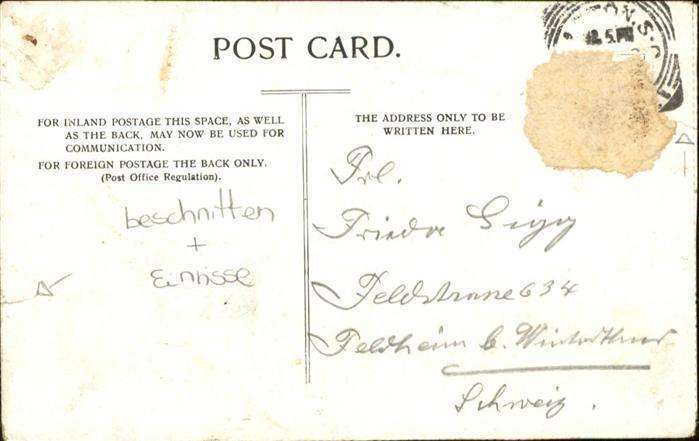 POST CARD.
FOR INLAND POSTAGE THIS SPACE, AS WELL
AS THE BACK, MAY NOW BE USED FOR
COMMUNICATION.
FOR FOREIGN POSTAGE THE BACK ONLY.
(Post Office Regulation).
beschnitten
+
Einrisse
THE ADDRESS ONLY TO BE
WRITTEN HERE.
Frl.
Frieda Sigg
Feldstrasse 634
Feldheim b. Winterthur
Schweiz.